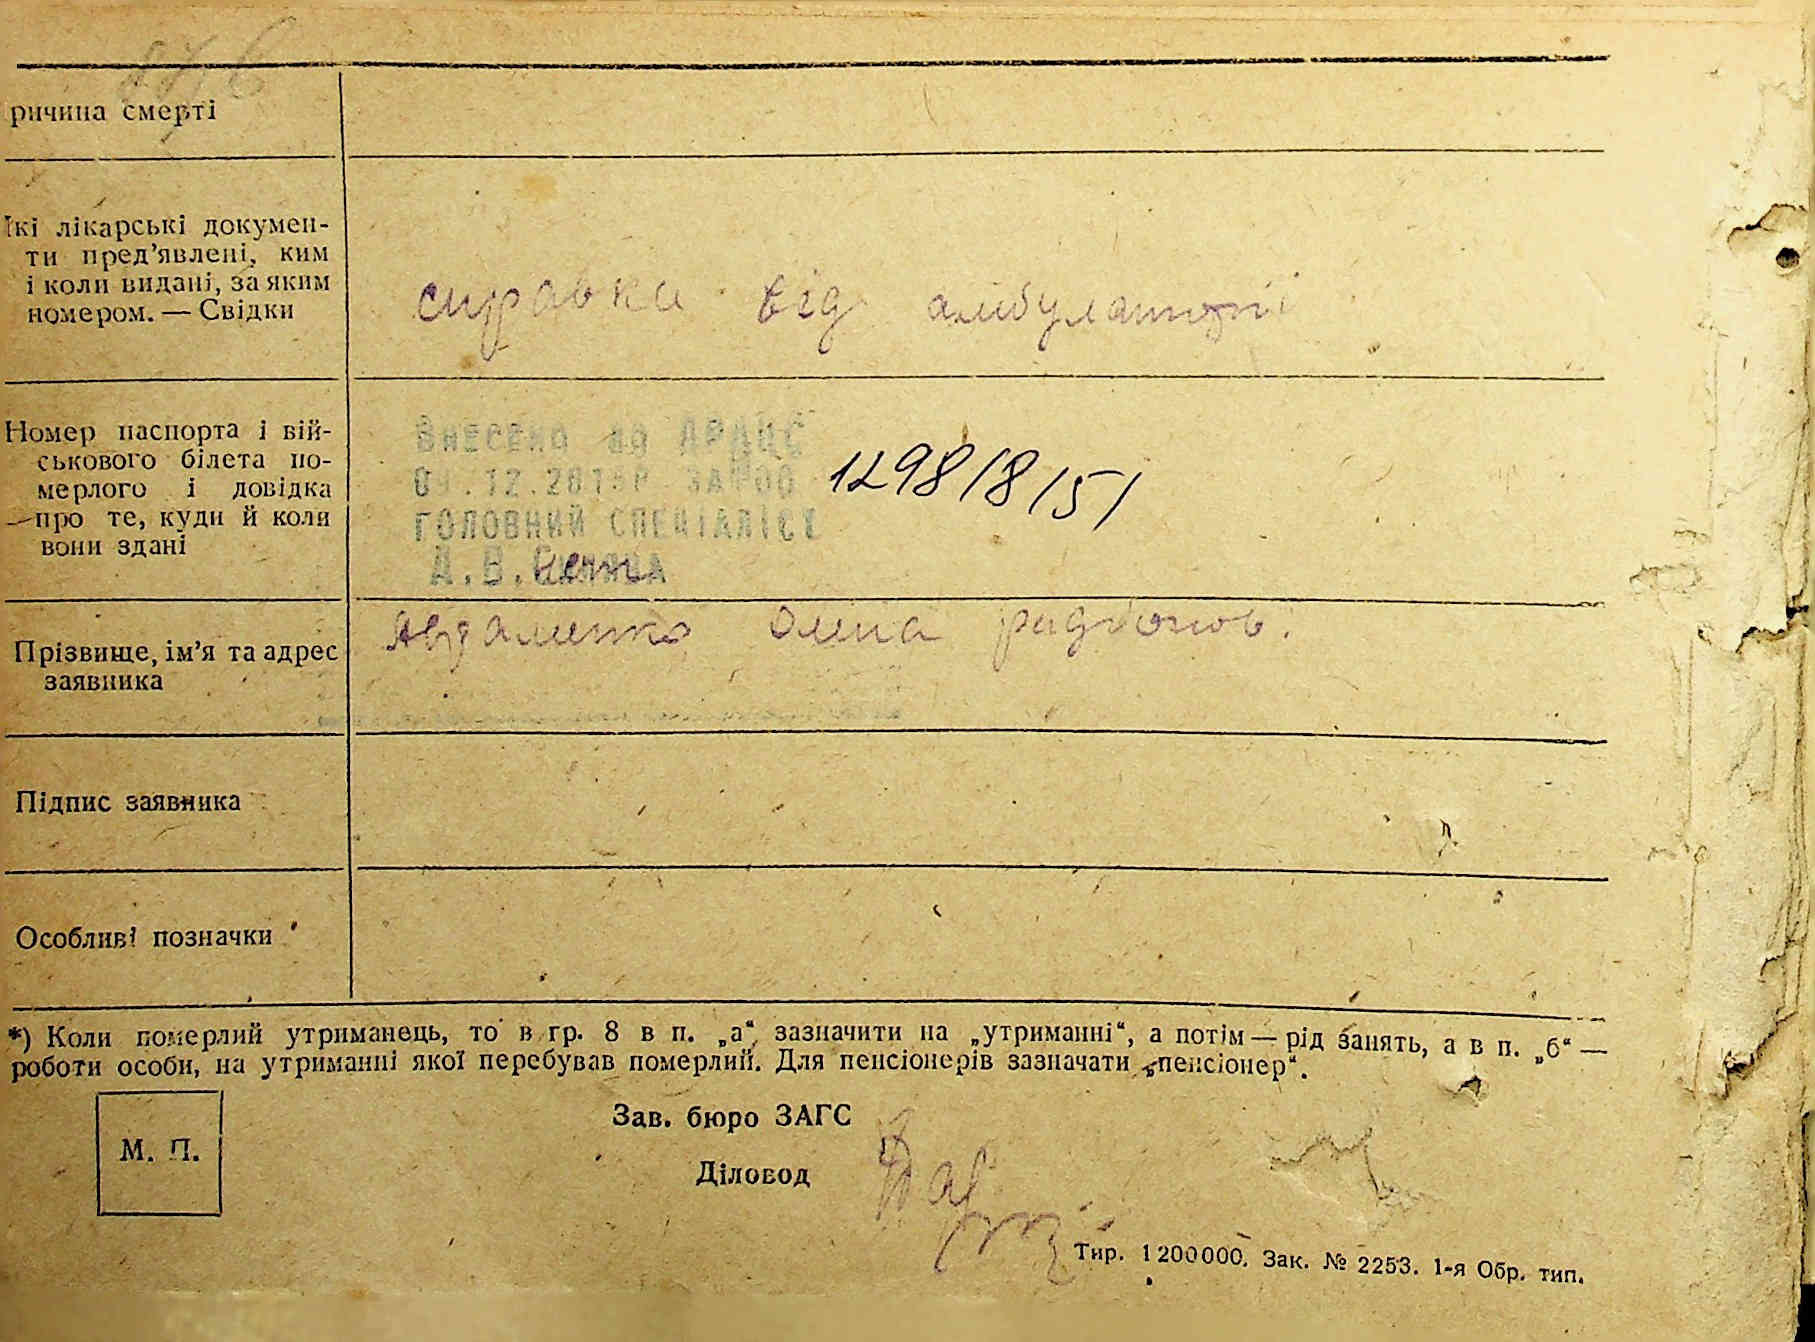 ричина смерті
які лікарські докумен-
ти пред’явлені, ким
і коли видані, за яким
номером. — Свідки
справка від амбулаторії
Номер паспорта і вій-
ськового білета по-
мерлого і довідка
про те, куди й коли
вони здані
Внесено до ДРАЦС
ГОЛОВНИЙ СПЕЦІАЛІСТ
А.В.
1298/8/51
Прізвище, ім’я та адрес
заявника
Авраменко Олена радіонов.
Підпис заявника
Особливі позначки
*) Коли померлий утриманець, то в гр. 8 в п. „а“ зазначити на „утриманні“, а потім — рід занять, а в п. „б“ —
роботи особи, на утриманні якої перебував померлий. Для пенсіонерів зазначати „пенсіонер“.
М. П.
Зав. бюро ЗАГС
Діловод
Тир. 1200000. Зак. № 2253. 1-я Обр. тип.